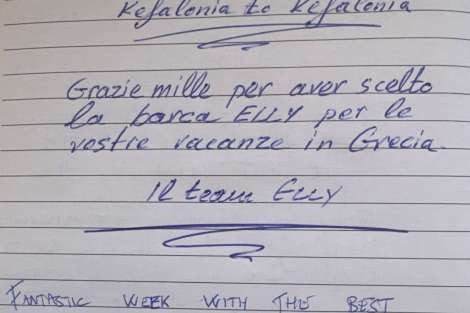 Kefalonia to Kefalonia
Grazie mille per aver scelto
la barca ELLY per le
vostre vacanze in Grecia.
Il team Elly
FANTASTIC WEEK WITH THE BEST